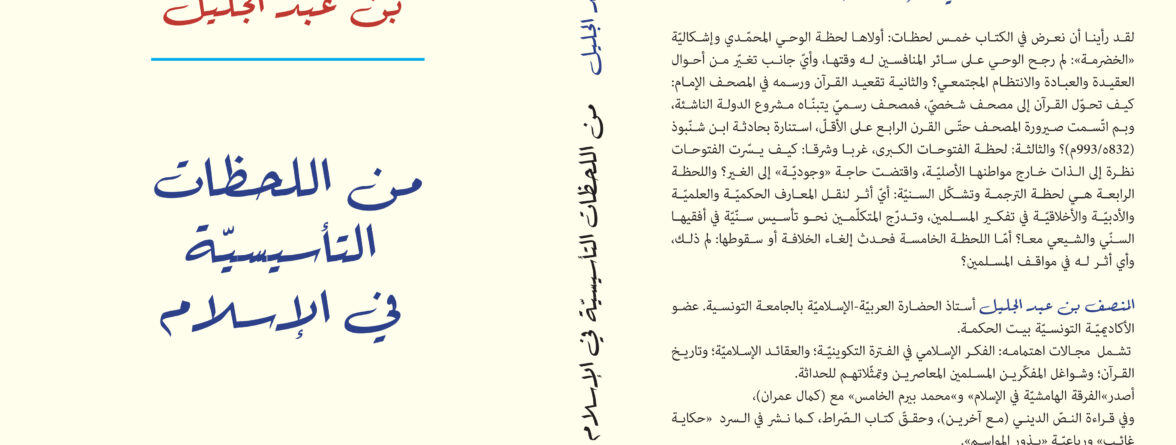 بن عبد الجليل
من اللحظات
التأسيسيّة
في الإسلام
د الجليل من اللحظات التأسيسيّة في الإسلام
لقد رأينا أن نعرض في الكتاب خمس لحظات: أولاها لحظة الوحي المحمّدي وإشكاليّة
«الخضرمة»: لم رجح الوحي على سائر المنافسين له وقتها، وأيّ جانب تغيّر من أحوال
العقيدة والعبادة والانتظام المجتمعي؟ والثانية تقعيد القرآن ورسمه في المصحف الإمام:
كيف تحوّل القرآن إلى مصحف شخصيّ، فمصحف رسميّ يتبنّاه مشروع الدولة الناشئة،
وبم اتّسمت صيرورة المصحف حتّى القرن الرابع على الأقلّ، استنارة بحادثة ابن شنّبوذ
(832ه/993م)؟ والثالثة: لحظة الفتوحات الكبرى، غربا وشرقا: كيف يسّرت الفتوحات
نظرة إلى الذات خارج مواطنها الأصليّة، واقتضت حاجة «وجوديّة» إلى الغير؟ واللحظة
الرابعة هي لحظة الترجمة وتشكّل السنيّة: أيّ أثر لنقل المعارف الحكميّة والعلميّة
والأدبيّة والأخلاقيّة في تفكير المسلمين، وتدرّج المتكلّمين نحو تأسيس سنّيّة في أفقيها
السنّي والشيعي معا؟ أمّا اللحظة الخامسة فحدث إلغاء الخلافة أو سقوطها: لم ذلك،
وأي أثر له في مواقف المسلمين؟
المنصف بن عبد الجليل أستاذ الحضارة العربيّة-الإسلاميّة بالجامعة التونسية. عضو
الأكاديميّة التونسيّة بيت الحكمة.
تشمل مجالات اهتمامه: الفكر الإسلامي في الفترة التكوينيّة؛ والعقائد الإسلاميّة؛ وتاريخ
القرآن؛ وشواغل المفكّرين المسلمين المعاصرين وتمثّلاتهم للحداثة.
أصدر»الفرقة الهامشيّة في الإسلام» و»محمد بيرم الخامس» مع (كمال عمران)،
وفي قراءة النصّ الديني (مع آخرين)، وحقّق كتاب الصّراط، كما نشر في السرد «حكاية
غائب» ورباعيّة «بذور المواسم».